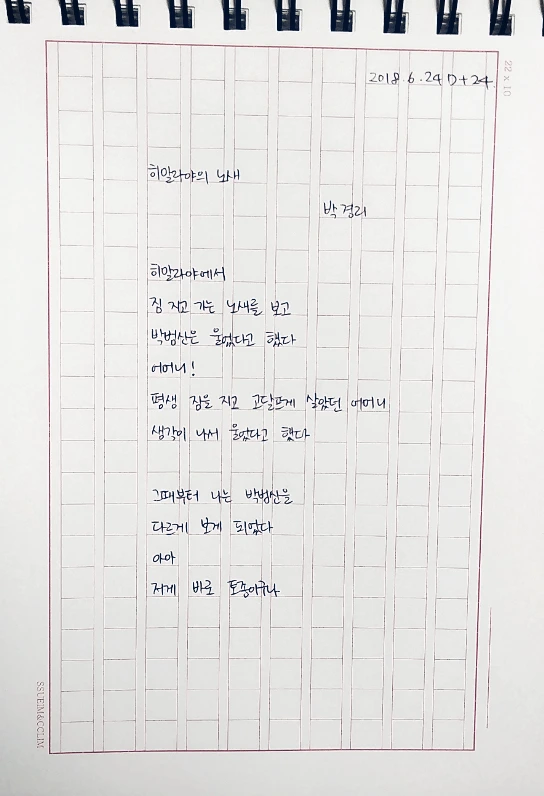 2018.6.24 D+24.
22 x 10
히말라야의 노새
박경리
히말라야에서
짐 지고 가는 노새를 보고
박범신은 울었다고 했다
어머니!
평생 짐을 지고 고달프게 살았던 어머니
생각이 나서 울었다고 했다
그때부터 나는 박범신을
다르게 보게 되었다
아아
저게 바로 토종이구나
SSUEIM&CCLIM